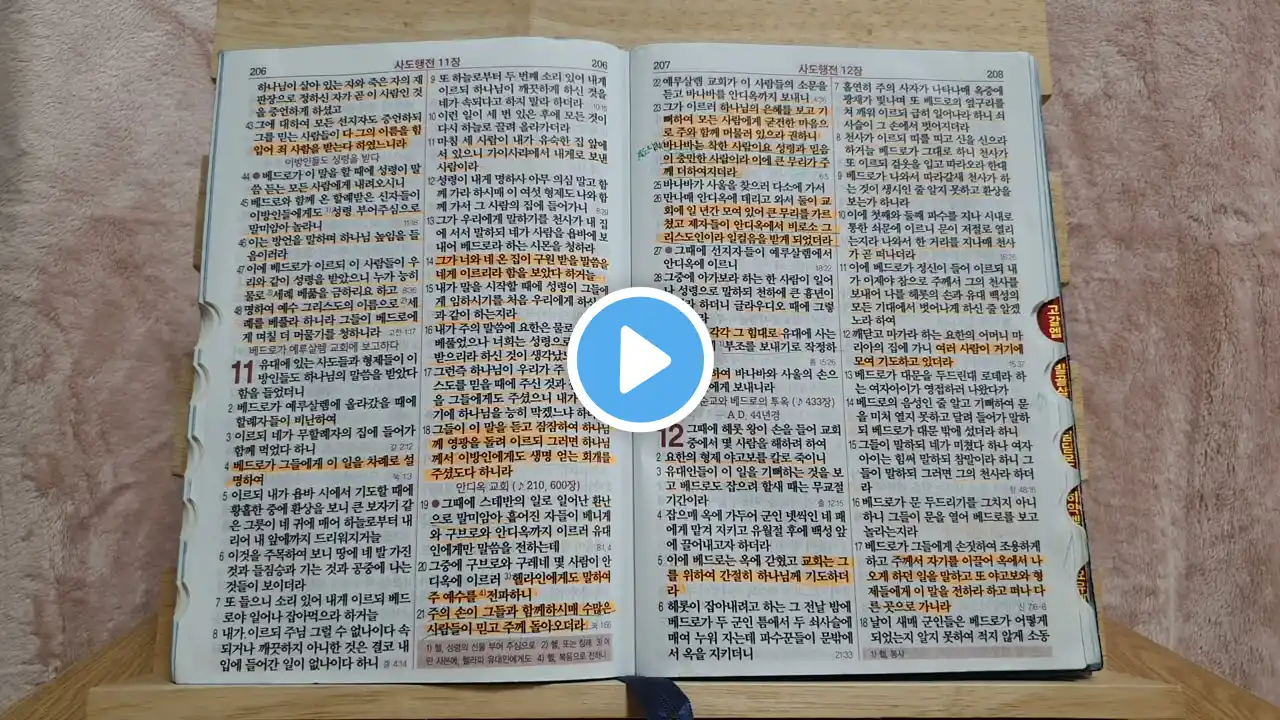 206 사도행전 11장 206
하나님이 살아 있는 자와 죽은 자의 재
판장으로 정하신 자가 곧 이 사람인 것
을 증언하게 하셨고
43 그에 대하여 모든 선지자도 증언하되
그를 믿는 사람들이 다 그의 이름을 힘
입어 죄 사함을 받는다 하였느니라
이방인들도 성령을 받다
44 ● 베드로가 이 말을 할 때에 성령이 말
씀 듣는 모든 사람에게 내려오시니
45 베드로와 함께 온 할례받은 신자들이
이방인들에게도 성령 부어주심으로
말미암아 놀라니
46 이는 방언을 말하며 하나님 높임을 들
음이러라
47 이에 베드로가 이르되 이 사람들이 우
리와 같이 성령을 받았으니 누가 능히
물로 세례 베풂을 금하리요 하고
48 명하여 예수 그리스도의 이름으로 세
례를 베풀라 하니라 그들이 베드로에
게 며칠 더 머물기를 청하니라
베드로가 예루살렘 교회에 보고하다
11 유대에 있는 사도들과 형제들이 이
방인들도 하나님의 말씀을 받았다
함을 들었더니
2 베드로가 예루살렘에 올라갔을 때에
할례자들이 비난하여
3 이르되 네가 무할례자의 집에 들어가
함께 먹었다 하니
4 베드로가 그들에게 이 일을 차례로 설
명하여
5 이르되 내가 욥바 시에서 기도할 때에
황홀한 중에 환상을 보니 큰 보자기 같
은 그릇이 네 귀에 매어 하늘로부터 내
리어 내 앞에까지 드리워지거늘
6 이것을 주목하여 보니 땅에 네 발 가진
것과 들짐승과 기는 것과 공중에 나는
것들이 보이더라
7 또 들으니 소리 있어 내게 이르되 베드
로야 일어나 잡아먹으라 하거늘
8 내가 이르되 주님 그럴 수 없나이다 속
되거나 깨끗하지 아니한 것은 결코 내
입에 들어간 일이 없나이다 하니
9 또 하늘로부터 두 번째 소리 있어 내게
이르되 하나님이 깨끗하게 하신 것을
네가 속되다고 하지 말라 하더라
10 이런 일이 세 번 있은 후에 모든 것이
다시 하늘로 끌려 올라가더라
11 마침 세 사람이 내가 유숙한 집 앞에
서 있으니 가이사랴에서 내게로 보낸
사람이라
12 성령이 내게 명하사 아무 의심 말고 함
께 가라 하시매 이 여섯 형제도 나와 함
께 가서 그 사람의 집에 들어가니
13 그가 우리에게 말하기를 천사가 내 집
에 서서 말하되 네가 사람을 욥바에 보
내어 베드로라 하는 시몬을 청하라
14 그가 너와 네 온 집이 구원 받을 말씀을
네게 이르리라 함을 보았다 하거늘
15 내가 말을 시작할 때에 성령이 그들에
게 임하시기를 처음 우리에게 하신
과 같이 하는지라
16 내가 주의 말씀에 요한은 물로
베풀었으나 너희는 성령으로
받으리라 하신 것이 생각났
17 그런즉 하나님이 우리가 주
스도를 믿을 때에 주신 것과
을 그들에게도 주셨으니 내가
기에 하나님을 능히 막겠느냐 하
18 그들이 이 말을 듣고 잠잠하여 하나님
께 영광을 돌려 이르되 그러면 하나님
께서 이방인에게도 생명 얻는 회개를
주셨도다 하니라
안디옥 교회 (♪ 210, 600장)
19 ● 그때에 스데반의 일로 일어난 환난
으로 말미암아 흩어진 자들이 베니게
와 구브로와 안디옥까지 이르러 유대
인에게만 말씀을 전하는데
20 그중에 구브로와 구레네 몇 사람이 안
디옥에 이르러 헬라인에게도 말하여
주 예수를 전파하니
21 주의 손이 그들과 함께하시매 수많은
사람들이 믿고 주께 돌아오더라
1) 헬, 성령의 선물 부어 주심으로 2) 헬, 또는 침례 3) 어
떤 사본에, 헬라파 유대인에게도 4) 헬, 복음으로 전하니
207 사도행전 12장 208
22 예루살렘 교회가 이 사람들의 소문을
듣고 바나바를 안디옥까지 보내니
23 그가 이르러 하나님의 은혜를 보고 기
뻐하여 모든 사람에게 굳건한 마음으
로 주와 함께 머물러 있으라 권하니
24 바나바는 착한 사람이요 성령과 믿음
이 충만한 사람이라 이에 큰 무리가 주
께 더하여지더라
25 바나바가 사울을 찾으러 다소에 가서
26 만나매 안디옥에 데리고 와서 둘이 교
회에 일 년간 모여 있어 큰 무리를 가르
쳤고 제자들이 안디옥에서 비로소 그
리스도인이라 일컬음을 받게 되었더라
27 ● 그때에 선지자들이 예루살렘에서
안디옥에 이르니
28 그중에 아가보라 하는 한 사람이 일어
나 성령으로 말하되 천하에 큰 흉년이
라 하더니 글라우디오 때에 그렇
각각 그 힘대로 유대에 사는
부조를 보내기로 작정하
여 바나바와 사울의 손으
에게 보내니라
순교와 베드로의 투옥 (♪ 433장)
A.D. 44년경
12 그때에 헤롯 왕이 손을 들어 교회
중에서 몇 사람을 해하려 하여
2 요한의 형제 야고보를 칼로 죽이니
3 유대인들이 이 일을 기뻐하는 것을 보
고 베드로도 잡으려 할새 때는 무교절
기간이라
4 잡으매 옥에 가두어 군인 넷씩인 네 패
에게 맡겨 지키고 유월절 후에 백성 앞
에 끌어내고자 하더라
5 이에 베드로는 옥에 갇혔고 교회는 그
를 위하여 간절히 하나님께 기도하더
라
6 헤롯이 잡아내려고 하는 그 전날 밤에
베드로가 두 군인 틈에서 두 쇠사슬에
매여 누워 자는데 파수꾼들이 문밖에
서 옥을 지키더니
7 홀연히 주의 사자가 나타나매 옥중에
광채가 빛나며 또 베드로의 옆구리를
쳐 깨워 이르되 급히 일어나라 하니 쇠
사슬이 그 손에서 벗어지더라
8 천사가 이르되 띠를 띠고 신을 신으라
하거늘 베드로가 그대로 하니 천사가
또 이르되 겉옷을 입고 따라오라 한대
9 베드로가 나와서 따라갈새 천사가 하
는 것이 생시인 줄 알지 못하고 환상을
보는가 하니라
10 이에 첫째와 둘째 파수를 지나 시내로
통한 쇠문에 이르니 문이 저절로 열리
는지라 나와서 한 거리를 지나매 천사
가 곧 떠나더라
11 이에 베드로가 정신이 들어 이르되 내
가 이제야 참으로 주께서 그의 천사를
보내어 나를 헤롯의 손과 유대 백성의
모든 기대에서 벗어나게 하신 줄 알겠
노라 하여
12 깨닫고 마가라 하는 요한의 어머니 마
리아의 집에 가니 여러 사람이 거기에
모여 기도하고 있더라
13 베드로가 대문을 두드린대 로데라 하
는 여자아이가 영접하러 나왔다가
14 베드로의 음성인 줄 알고 기뻐하여 문
을 미처 열지 못하고 달려 들어가 말하
되 베드로가 대문 밖에 섰더라 하니
15 그들이 말하되 네가 미쳤다 하나 여자
아이는 힘써 말하되 참말이라 하니 그
들이 말하되 그러면 그의 천사라 하더
라
16 베드로가 문 두드리기를 그치지 아니
하니 그들이 문을 열어 베드로를 보고
놀라는지라
17 베드로가 그들에게 손짓하여 조용하게
하고 주께서 자기를 이끌어 옥에서 나
오게 하던 일을 말하고 또 야고보와 형
제들에게 이 말을 전하라 하고 떠나 다
른 곳으로 가니라
18 날이 새매 군인들은 베드로가 어떻게
되었는지 알지 못하여 적지 않게 소동
1) 헬, 봉사